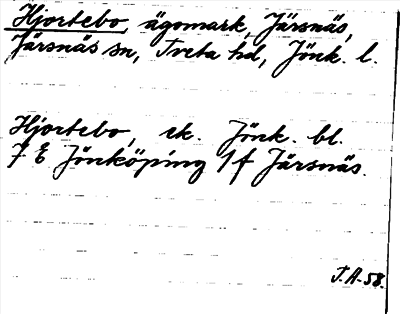 Hjortebo, ägomark, Järsnäs,
Järsnäs sn, Tveta hd, Jönk. l.
Hjortebo, ek. Jönk. bl.
7 E Jönköping 1 f Järsnäs.
T.A-58.